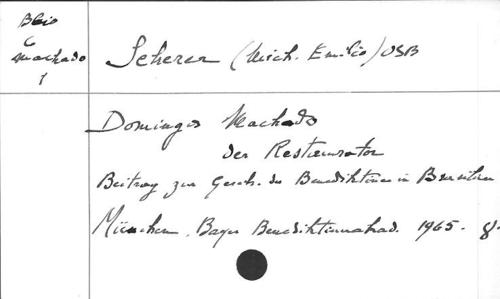 Bbio
C
Machado
1
Scherer (Mich. Emilio) OSB
Domingos Machado
der Restaurator
Beitrag zur Gesch. der Benediktiner in Brasilien
München, Bayer Benediktinerakad. 1965. 8.